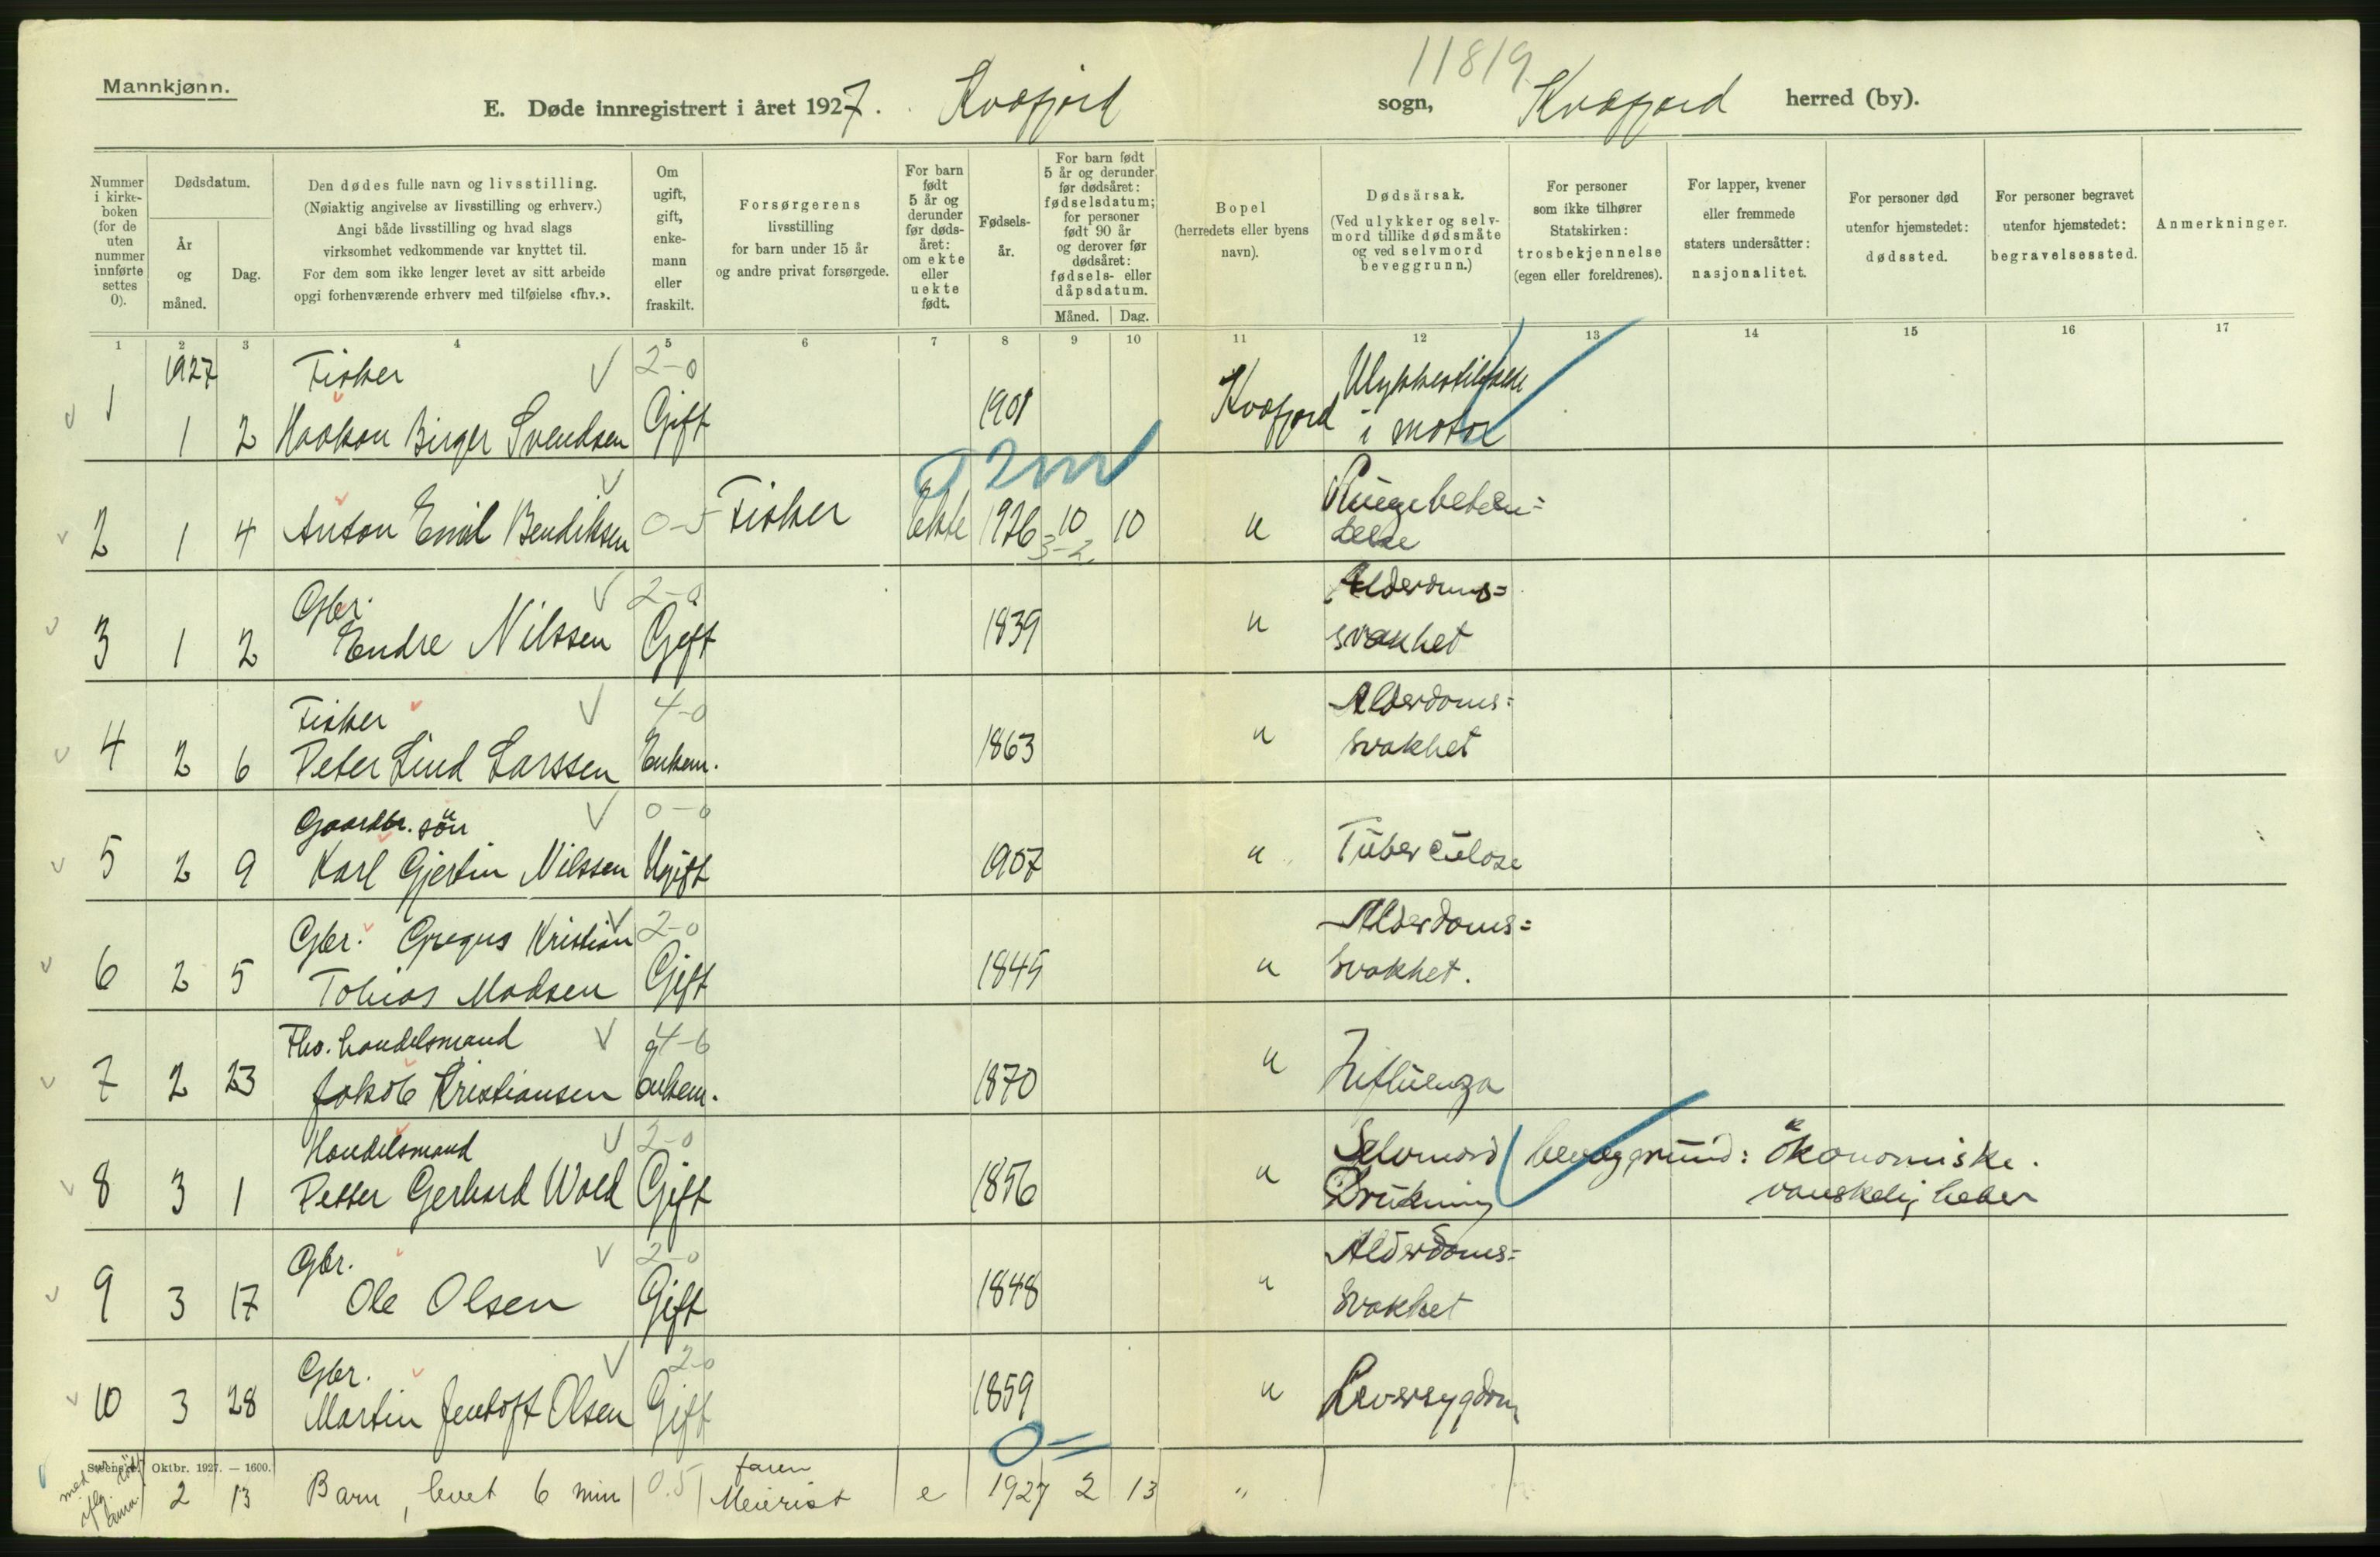 11819
Mannkjønn.
E. Døde innregistrert i året 1927. Kvæfjord sogn, Kvæfjord herred (by).
Nummer i kirke-boken (for de uten nummer innførte settes 0).
Dødsdatum.
År og måned.
Dag.
Den dødes fulle navn og livsstilling.
(Nøiaktig angivelse av livsstilling og erhverv.)
Angi både livsstilling og hvad slags
virksomhet vedkommende var knyttet til.
For dem som ikke lenger levet av sitt arbeide
opgi forhenværende erhverv med tilføielse «fhv.».
Om ugift, gift, enke-mann eller fraskilt.
Forsørgerens
livsstilling
for barn under 15 år
og andre privat forsørgede.
For barn født 5 år og derunder før døds-året: om ekte eller uekte født.
Fødsels-år.
For barn født 5 år og derunder før dødsåret: fødselsdatum; for personer født 90 år og derover før dødsåret: fødsels- eller dåpsdatum.
Måned. Dag.
Bopel
(herredets eller byens
navn).
Dødsårsak.
(Ved ulykker og selv-
mord tillike dødsmåte
og ved selvmord
beveggrunn.)
For personer
som ikke tilhører
Statskirken:
trosbekjennelse
(egen eller foreldrenes).
For lapper, kvener
eller fremmede
staters undersåtter:
nasjonalitet.
For personer død
utenfor hjemstedet:
dødssted.
For personer begravet
utenfor hjemstedet:
begravelsessted.
Anmerkninger.
1 2 3 4 5 6 7 8 9 10 11 12 13 14 15 16 17
1927 Fisker 2-0 Ulykkestilfelle
1 1 2 Haakon Birger Svendsen Gift 1901 Kvæfjord i motor
2 m
2 1 4 Anton Emil Bendiksen 0-5 Fisker Ekte 1926 10 10 " Lungebeten=
3-2 delse
Gbr. 2-0 Alderdoms=
3 1 2 Endre Nilssen Gift 1839 " svakhet
Fisker 4-0 Alderdoms=
4 2 6 Peter Lind Larssen Enkem. 1863 " svakhet
Gaardbr. søn 0-0
5 2 9 Karl Gjertin Nilssen Ugift 1907 " Tuberculose
Gbr. Gregus Kristian 2-0 Alderdoms=
6 2 5 Tobias Madsen Gift 1845 " svakhet.
Fhv. handelsmand 4-6
7 2 23 Jakob Kristiansen enkem. 1870 " Influenza
Handelsmand 2-0 Selvmord beveggrund: økonomiske
8 3 1 Petter Gerhard Wold Gift 1856 " Drukning vanskeligheter
Gbr. 2-0 Alderdoms=
9 3 17 Ole Olsen Gift 1848 " svakhet
Gbr. 2-0
10 3 28 Martin Jentoft Olsen Gift 1859 " Leversygdom
0=
Oktbr. 1927. — 1600.
faren
2 13 Barn, levet 6 min 0.5 Meierist e 1927 2 13 "